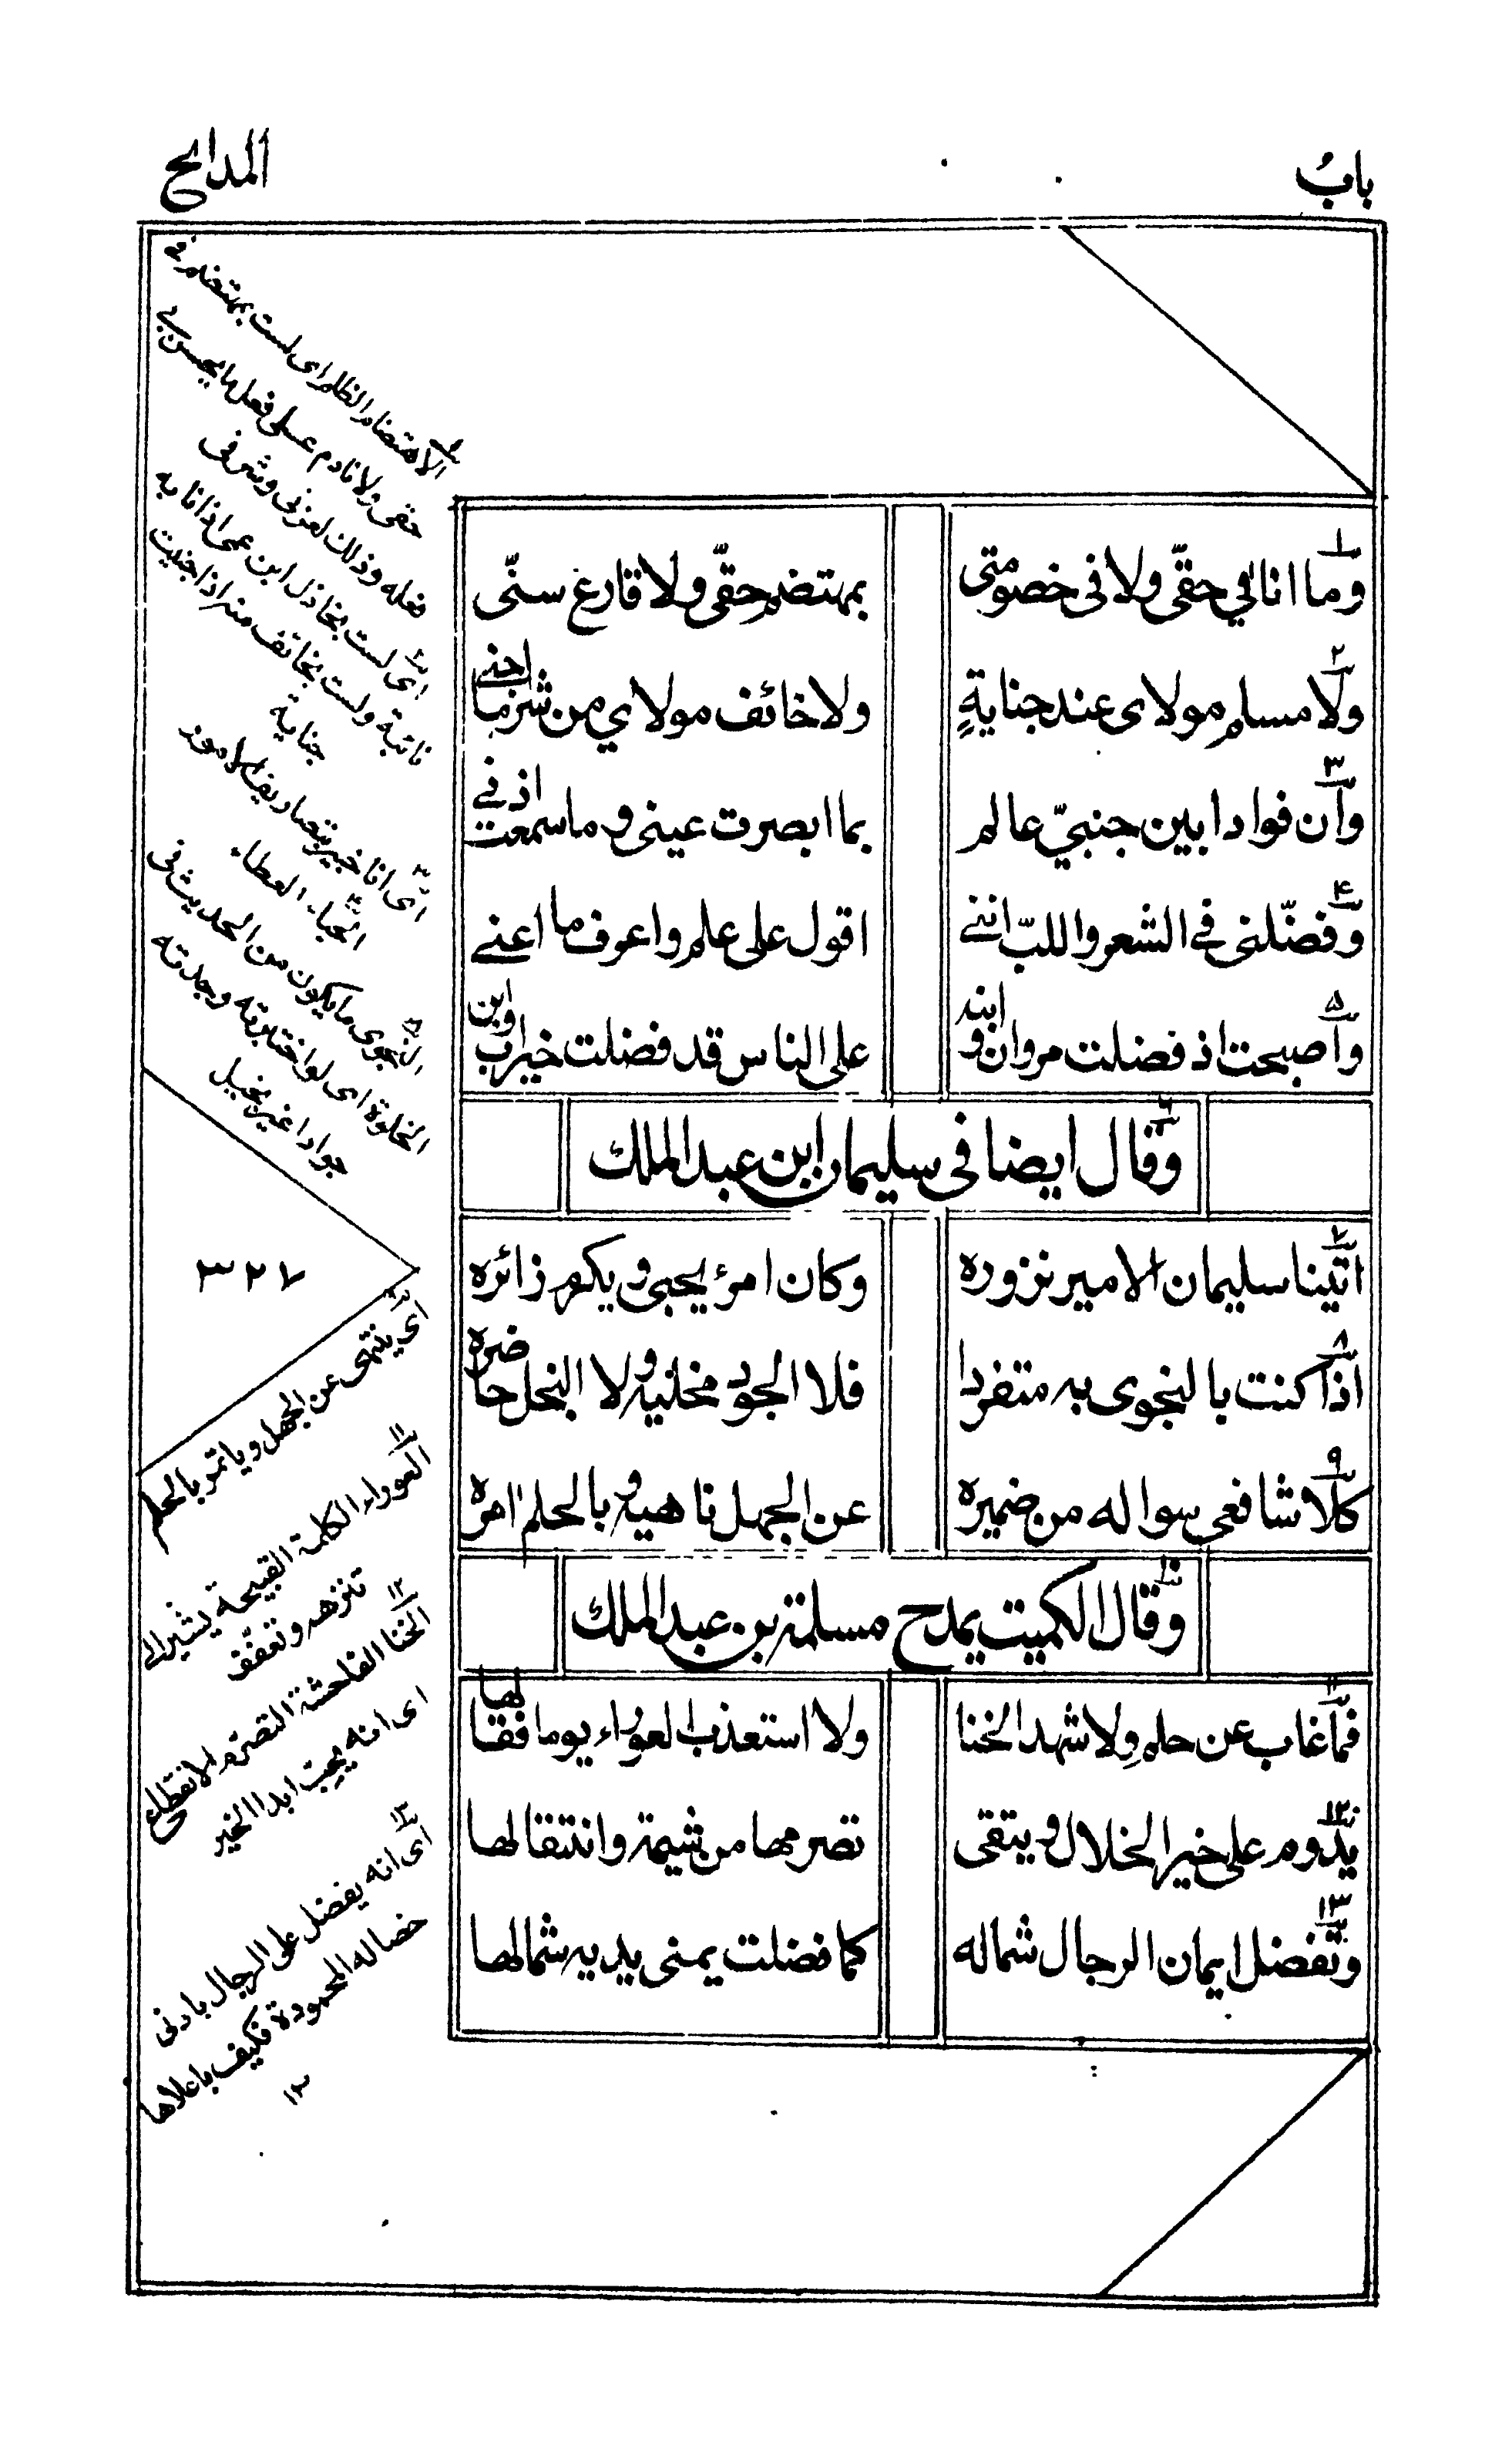 باب المدايح
١ وما انا في حقّي ولا فى خصومتى بمهتضم حقّي ولا قارع سنّى
٢ ولا مسلم مولاى عند جنايةٍ ولا خائف مولاي من شر ما اجنى
٣ وان فوادا بين جنبيّ عالم بما ابصرت عينى وما سمعت اذنى
٤ وفضّلنى في الشعر واللبّ اننى اقول على علم واعرف ما اعنى
٥ واصبحت اذ فضلت مروان وابنه على الناس قد فضلت خيراب وابن
٦ وقال ايضا فى سليمان ابن عبد الملك
٧ اتينا سليمان الامير نزوره وكان امرءٌ يحبى ويكرم زائره
٨ اذا كنت بالنجوى به متفردا فلا الجود مخليه ولا البخل حاضره
٩ كلا شافعى سواله من ضميره عن الجهل ناهيه وبالحلم امره
١٠ وقال الكميت يمدح مسلمة بن عبد الملك
١١ فما غاب عن حلم ولا شهد الخنا ولا استعذب العوراء يوما فقالها
١٢ يدوم على خير الخلال ويتقى تصرمها من شيمة وانتقالها
١٣ وتفضل ايمان الرجال شماله كما فضلت يمنى يديه شمالها
الاهتضام الظلم اى لست بمهتضم فى
حقى ولا نادم على فعل ما يحسن بى
فعله وذلك لعزنى وشرفى
٢ اى لست بخاذل ابن عمى اذا نابه
نائبة ولست بخائف منه اذا جنيت
جناية
٣ اى انا خبير بتصاريف الامور
الحباء العطاء
٨ النجوى ما يكون من الحديث فى
الخلوة اى لو اختبرته وجدته
جوادا غير بخيل
٣٢٧
٩ اى ينتهى عن الجهل وياتمر بالحلم
١١ العوراء الكلمة القبيحة يشير الى
تنزهه وتعفف
١٢ الخنا الفاحشة التصرم الانقطاع
اى انه يحب ابدا الخير
١٣ اى انه يفضل على الرجال بادنى
خصاله المحمودة فكيف باعلاها
١٢